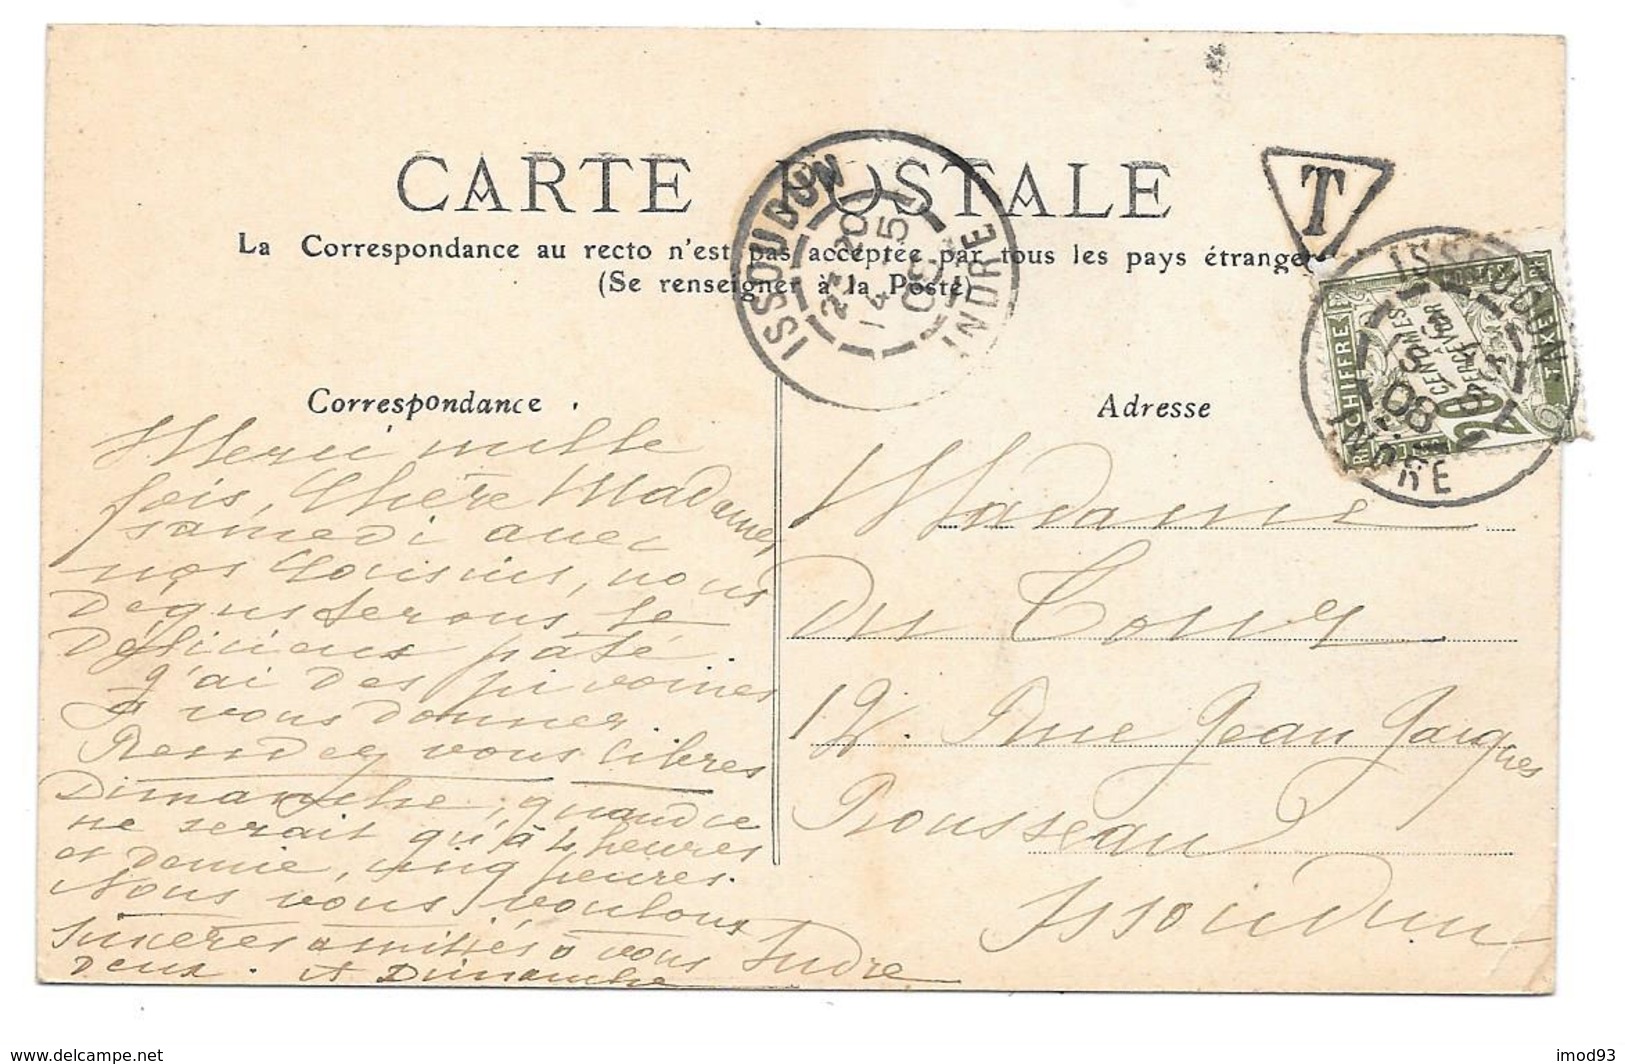 CARTE POSTALE
La Correspondance au recto n'est pas acceptée par tous les pays étrangers
(Se renseigner à la Poste)
ISSOUDUN
INDRE
T
ISSOUDUN
INDRE
08
CHIFFRE
TAXE
20
CENTIMES
À PERCEVOIR
Correspondance
Merci mille
fois, Chère Madame,
samedi avec
nos Cousins, nous
dégusterons le
délicieux pâté.
J'ai des pivoines
à vous donner.
Rendez vous libres
Dimanche, quand ce
ne serait qu'à 4 heures
et demie, cinq heures.
Nous vous voulons
sincères amitiés à vous
deux. et Dimanche
Adresse
Madame
Du Cour
12, Rue Jean Jacques
Rousseau
Issoudun
Indre
delcampe.net
imod93